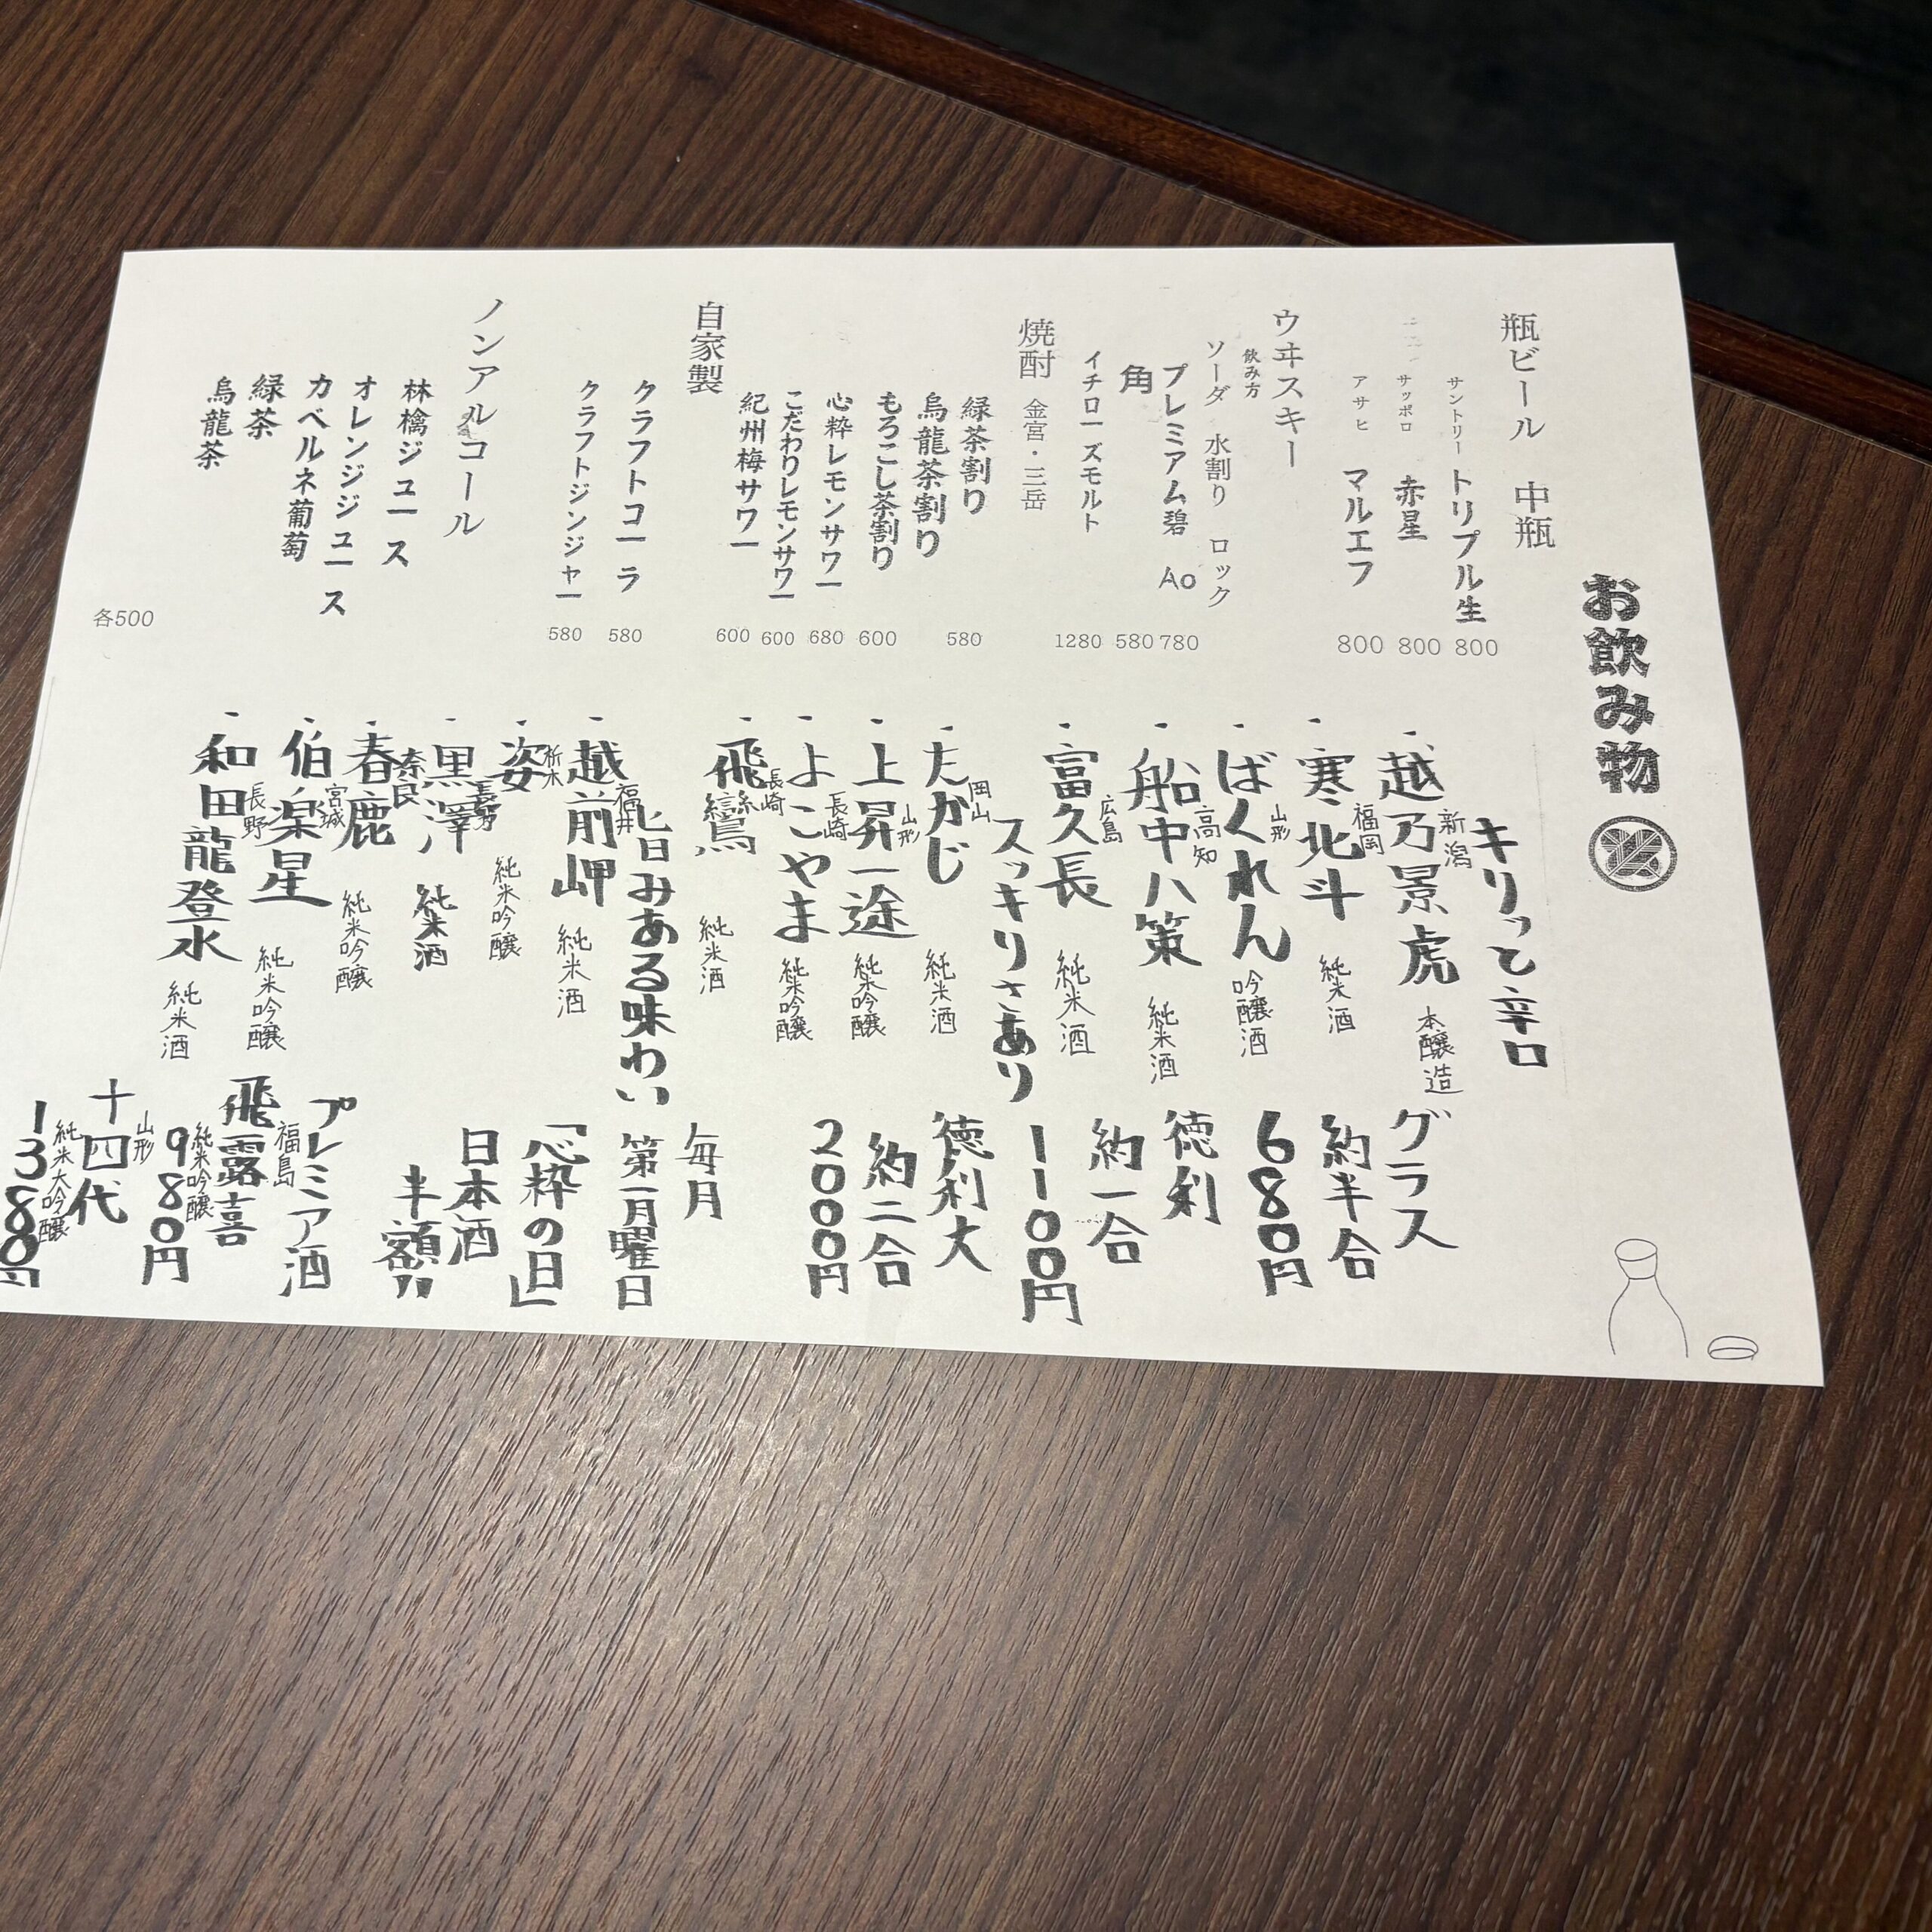 お飲み物
瓶ビール 中瓶
サントリー トリプル生 800
サッポロ 赤星 800
アサヒ マルエフ 800
ウヰスキー
飲み方
ソーダ 水割り ロック
プレミアム碧 Ao 780
角 580
イチローズモルト 1280
焼酎 金宮・三岳
緑茶割り 580
烏龍茶割り
もろこし茶割り 600
心粋レモンサワー 680
こだわりレモンサワー 600
紀州梅サワー 600
自家製
クラフトコーラ 580
クラフトジンジャー 580
ノンアルコール
林檎ジュース
オレンジジュース
カベルネ葡萄
緑茶
烏龍茶
各500
キリッと辛口
・越乃景虎 新潟 本醸造
・寒北斗 福岡 純米酒
・ばくれん 山形 吟醸酒
・船中八策 高知 純米酒
・富久長 広島 純米酒
スッキリさあり
・たかじ 岡山 純米酒
・上昇一途 山形 純米吟醸
・よこやま 長崎 純米吟醸
・飛鸞 長崎 純米酒
旨みある味わい
・越前岬 福井 純米酒
・姿 栃木 純米吟醸
・黒澤 長野 純米酒
・春鹿 奈良 純米吟醸
・伯楽星 宮城 純米吟醸
・和田龍登水 長野 純米酒
グラス
約半合
680円
徳利
約一合
1100円
徳利大
約二合
2000円
毎月
第一月曜日
「心粋の日」
日本酒
半額!!
プレミア酒
飛露喜 福島 純米吟醸
980円
十四代 山形 純米大吟醸
1380円